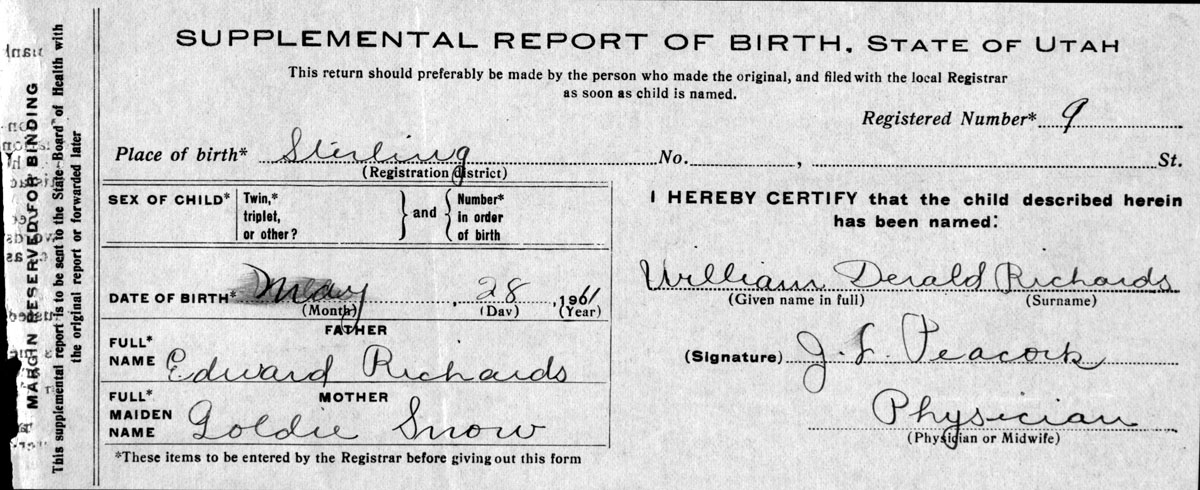 SUPPLEMENTAL REPORT OF BIRTH, STATE OF UTAH
This return should preferably be made by the person who made the original, and filed with the local Registrar
as soon as child is named.
Registered Number* 9
Place of birth* Sterling No. , St.
(Registration district)
SEX OF CHILD* Twin,* triplet, or other? } and { Number* in order of birth
DATE OF BIRTH* May , 28 , 1961
(Month) (Day) (Year)
FATHER
FULL* NAME Edward Richards
MOTHER
FULL* MAIDEN NAME Goldie Snow
*These items to be entered by the Registrar before giving out this form
I HEREBY CERTIFY that the child described herein
has been named:
William Derald Richards
(Given name in full) (Surname)
(Signature) J. L. Peacock
Physician
(Physician or Midwife)
MARGIN RESERVED FOR BINDING
This supplemental report is to be sent to the State Board of Health with
the original report or forwarded later